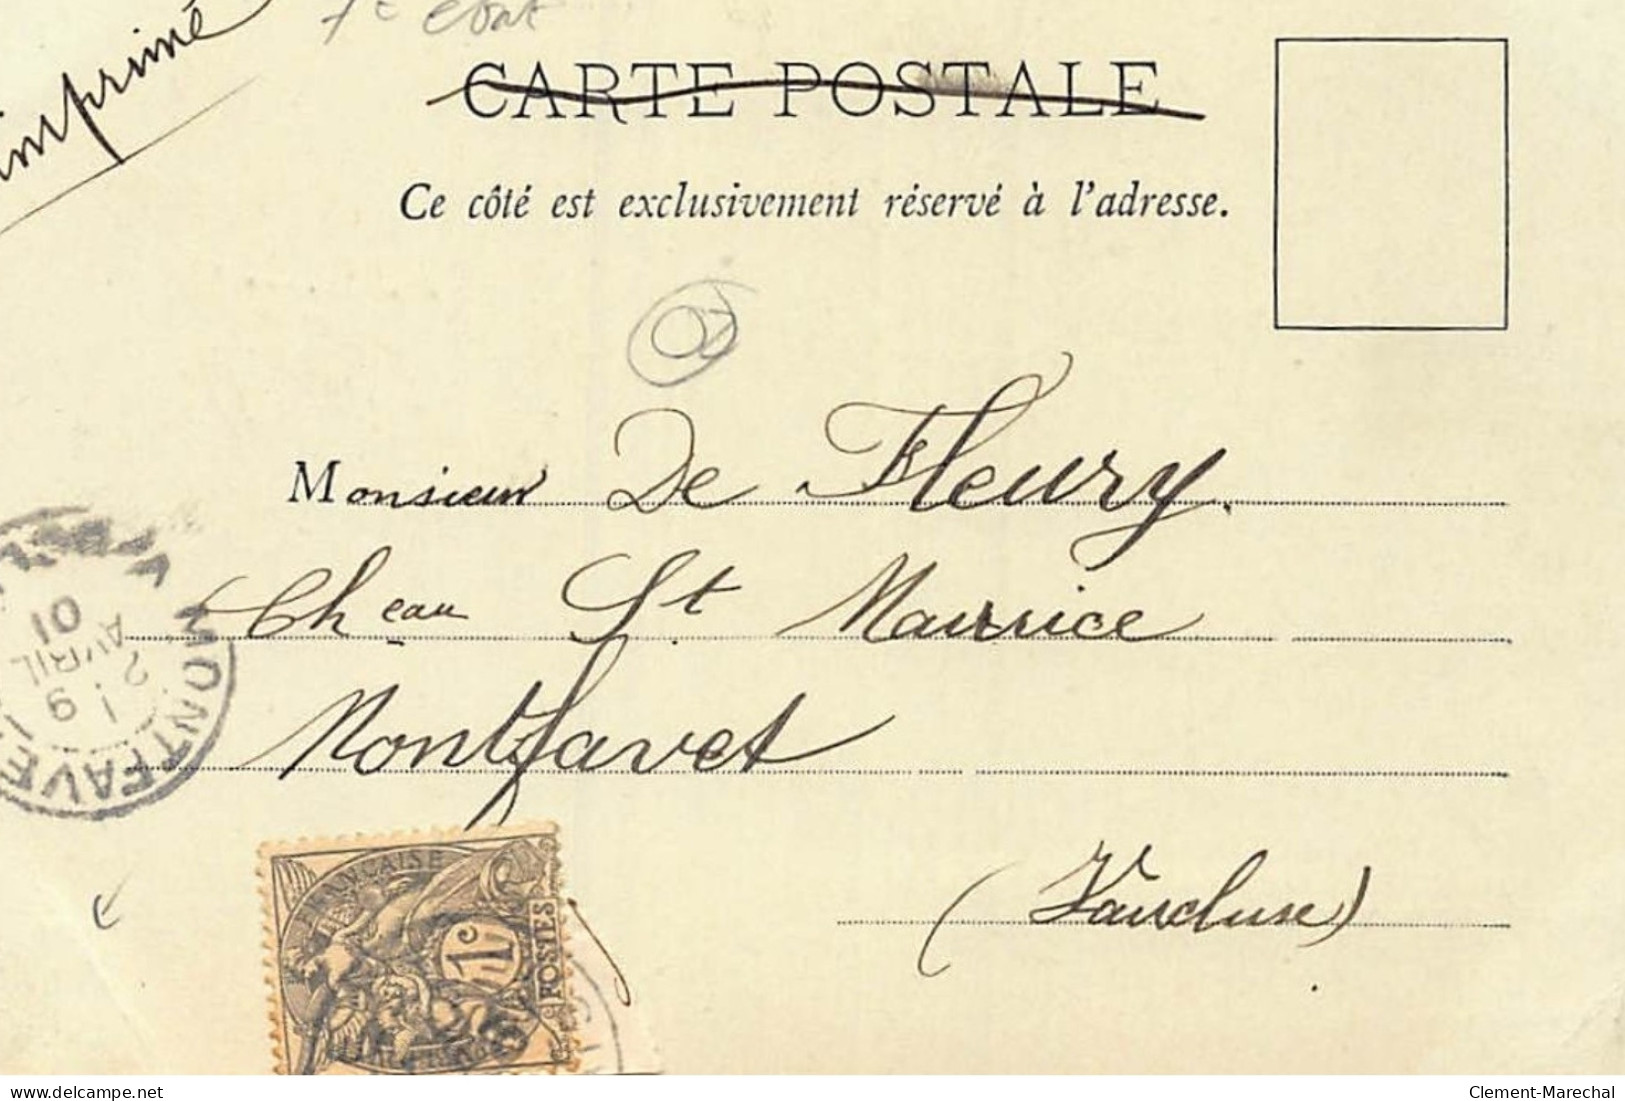 imprimé
CARTE POSTALE
Ce côté est exclusivement réservé à l'adresse.
Monsieur De Fleury.
Cheau St Maurice
Montfavet
(Vaucluse)
MONTFAVET
19
2
AVRIL
01
FRANÇAISE
1c
POSTES
delcampe.net
Clement-Marechal